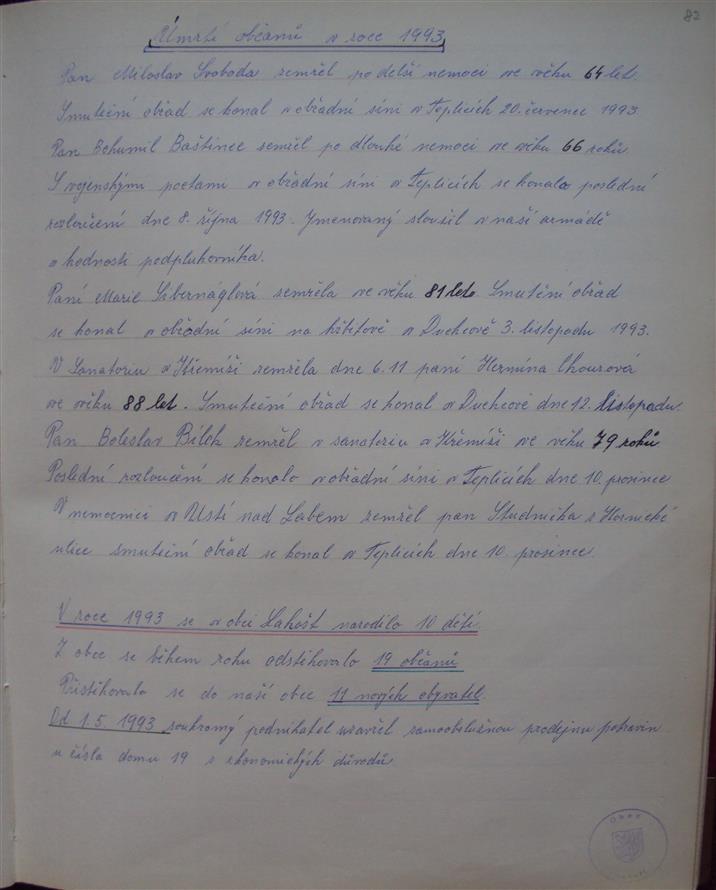 82
Úmrtí občanů v roce 1993
Pan Miloslav Svoboda zemřel po delší nemoci ve věku 64 let.
Smuteční obřad se konal v obřadní síni v Teplicích 20. července 1993.
Pan Bohumil Baštinec zemřel po dlouhé nemoci ve věku 66 roků
S vojenskými poctami v obřadní síni v Teplicích se konalo poslední
rozloučení dne 8. října 1993. Jmenovaný sloužil v naší armádě
v hodnosti podplukovníka.
Paní Marie Sibernáglová zemřela ve věku 81 let. Smuteční obřad
se konal v obřadní síni na hřbitově v Duchcově 3. listopadu 1993.
V Sanatoriu v Křemíži zemřela dne 6.11 paní Hermína
ve věku 88 let. Smuteční obřad se konal v Duchcově dne 12. listopadu.
Pan Boleslav Bílek zemřel v sanatoriu v Křemíži ve věku 79 roků
Poslední rozloučení se konalo v obřadní síni v Teplicích dne 10. prosince
V nemocnici v Ústí nad Labem zemřel pan Studnička z Hornické
ulice smuteční obřad se konal v Teplicích dne 10. prosince.
V roce 1993 se v obci Lahošť narodilo 10 dětí.
Z obce se během roku odstěhovalo 19 občanů
Přistěhovalo se do naší obce 11 nových obyvatel.
Od 1.5. 1993 soukromý podnikatel uzavřel samoobslužnou prodejnu potravin
u čísla domu 19 z ekonomických důvodů.
Obec